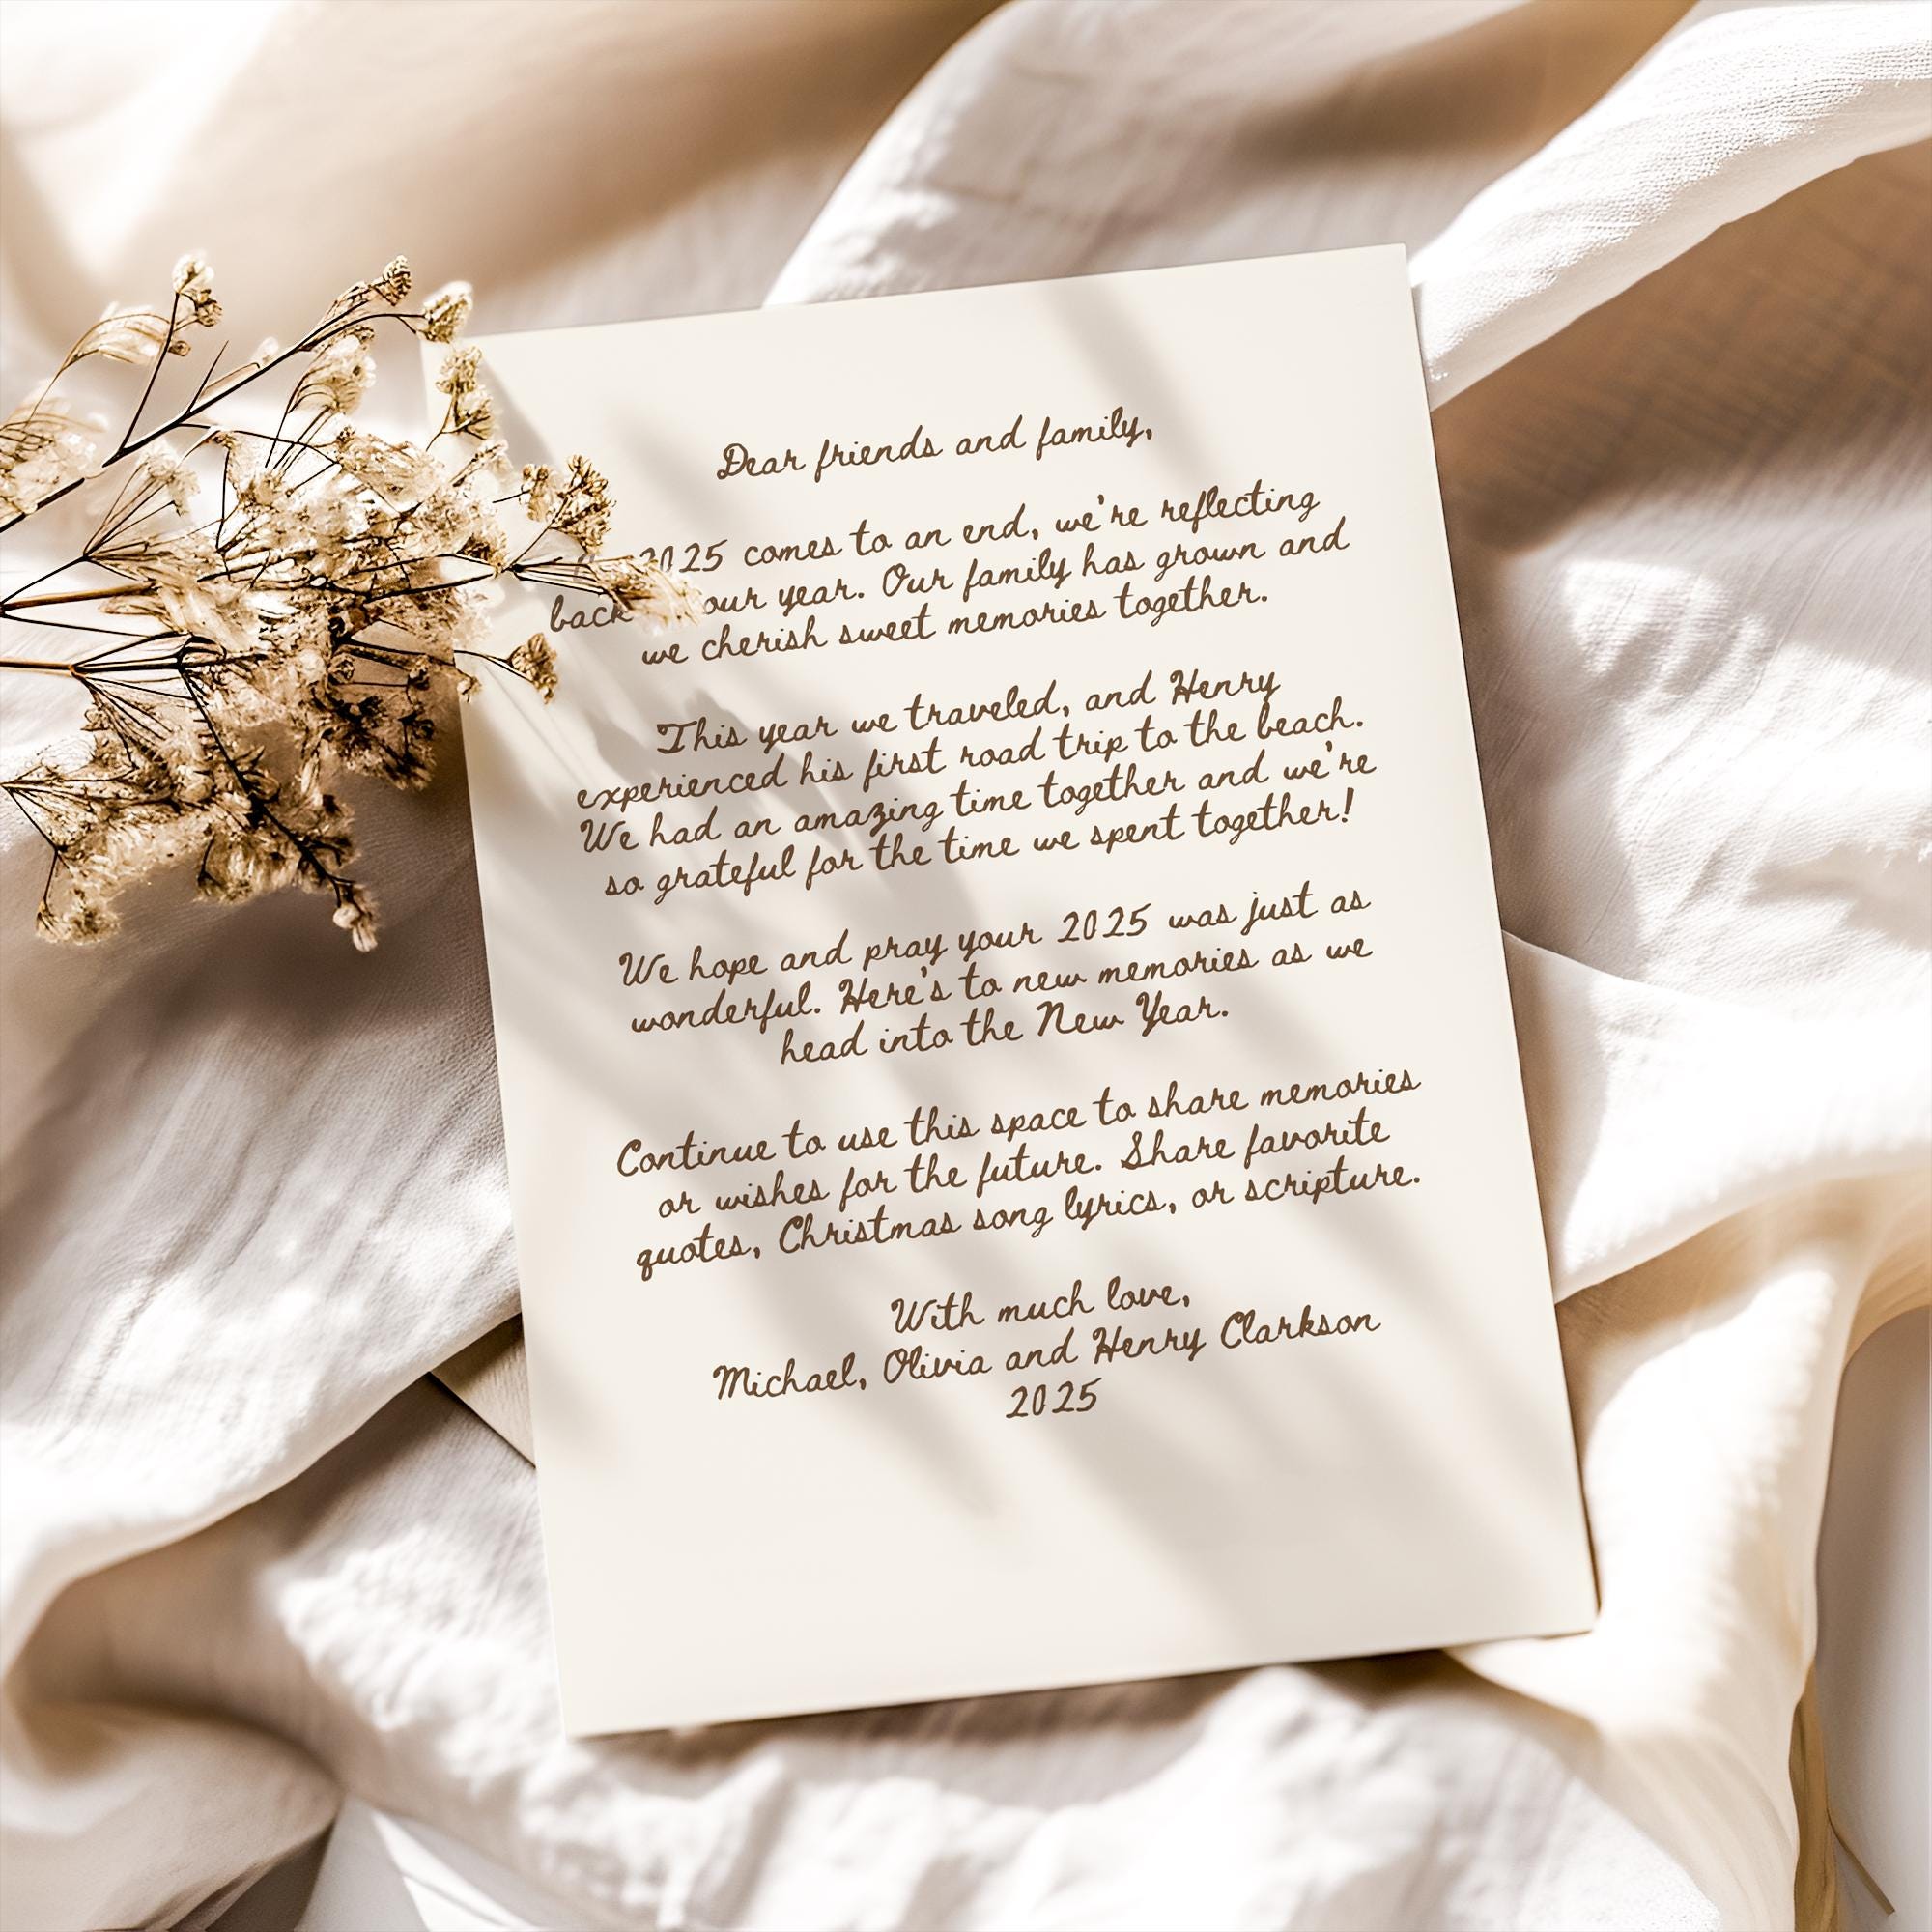 Dear friends and family,
2025 comes to an end, we're reflecting
back our year. Our family has grown and
we cherish sweet memories together.
This year we traveled, and Henry
experienced his first road trip to the beach.
We had an amazing time together and we're
so grateful for the time we spent together!
We hope and pray your 2025 was just as
wonderful. Here's to new memories as we
head into the New Year.
Continue to use this space to share memories
or wishes for the future. Share favorite
quotes, Christmas song lyrics, or scripture.
With much love,
Michael, Olivia and Henry Clarkson
2025